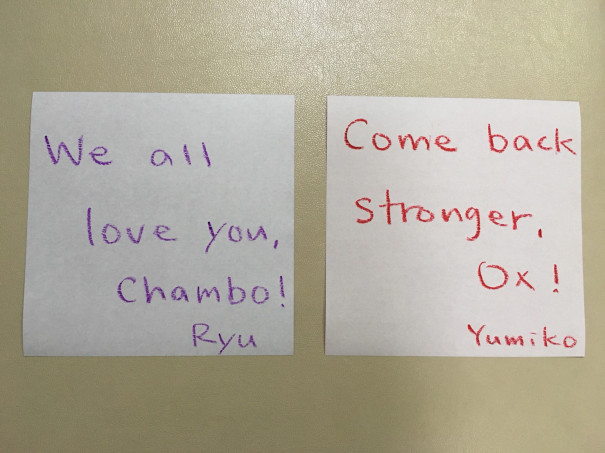 We all
love you,
Chambo!
Ryu
Come back
stronger,
Ox!
Yumiko